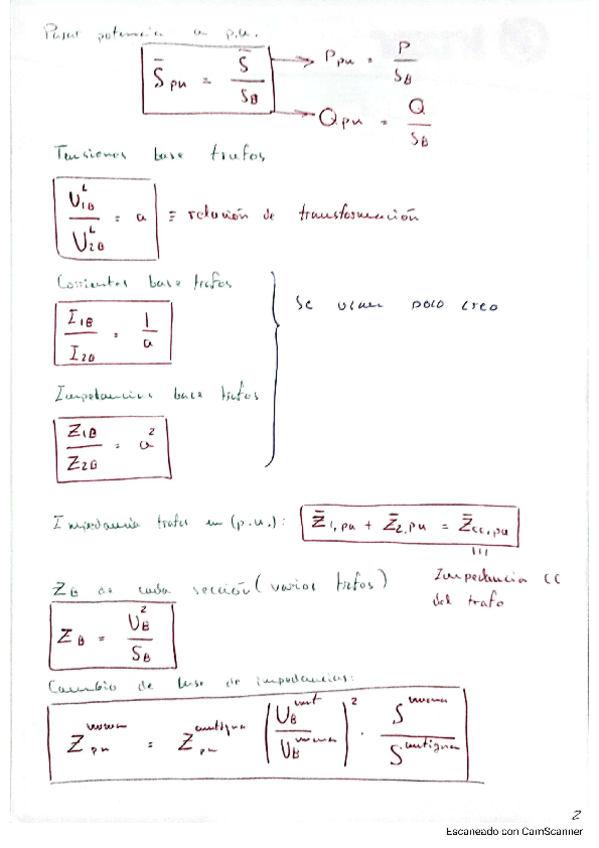 Pasar potencia a p.u.
S̄ pu = S̄ / S_B → P pu = P / S_B
→ Q pu = Q / S_B
Tensiones base trafos
U_1B^L / U_2B^L = a ≡ relación de transformación
Corrientes base trafos
I_1B / I_2B = 1 / a
se usan poco creo
Impedancias base trafos
Z_1B / Z_2B = a²
Impedancia trafos en (p.u.): Z̄_1,pu + Z̄_2,pu = Z̄_cc,pu
Impedancia CC
del trafo
Z_B de cada sección (varios trafos)
Z_B = U_B² / S_B
Cambio de base de impedancias:
Z_pu^nueva = Z_pu^antigua (U_B^ant / U_B^nueva)² · S^nueva / S^antigua
2
Escaneado con CamScanner